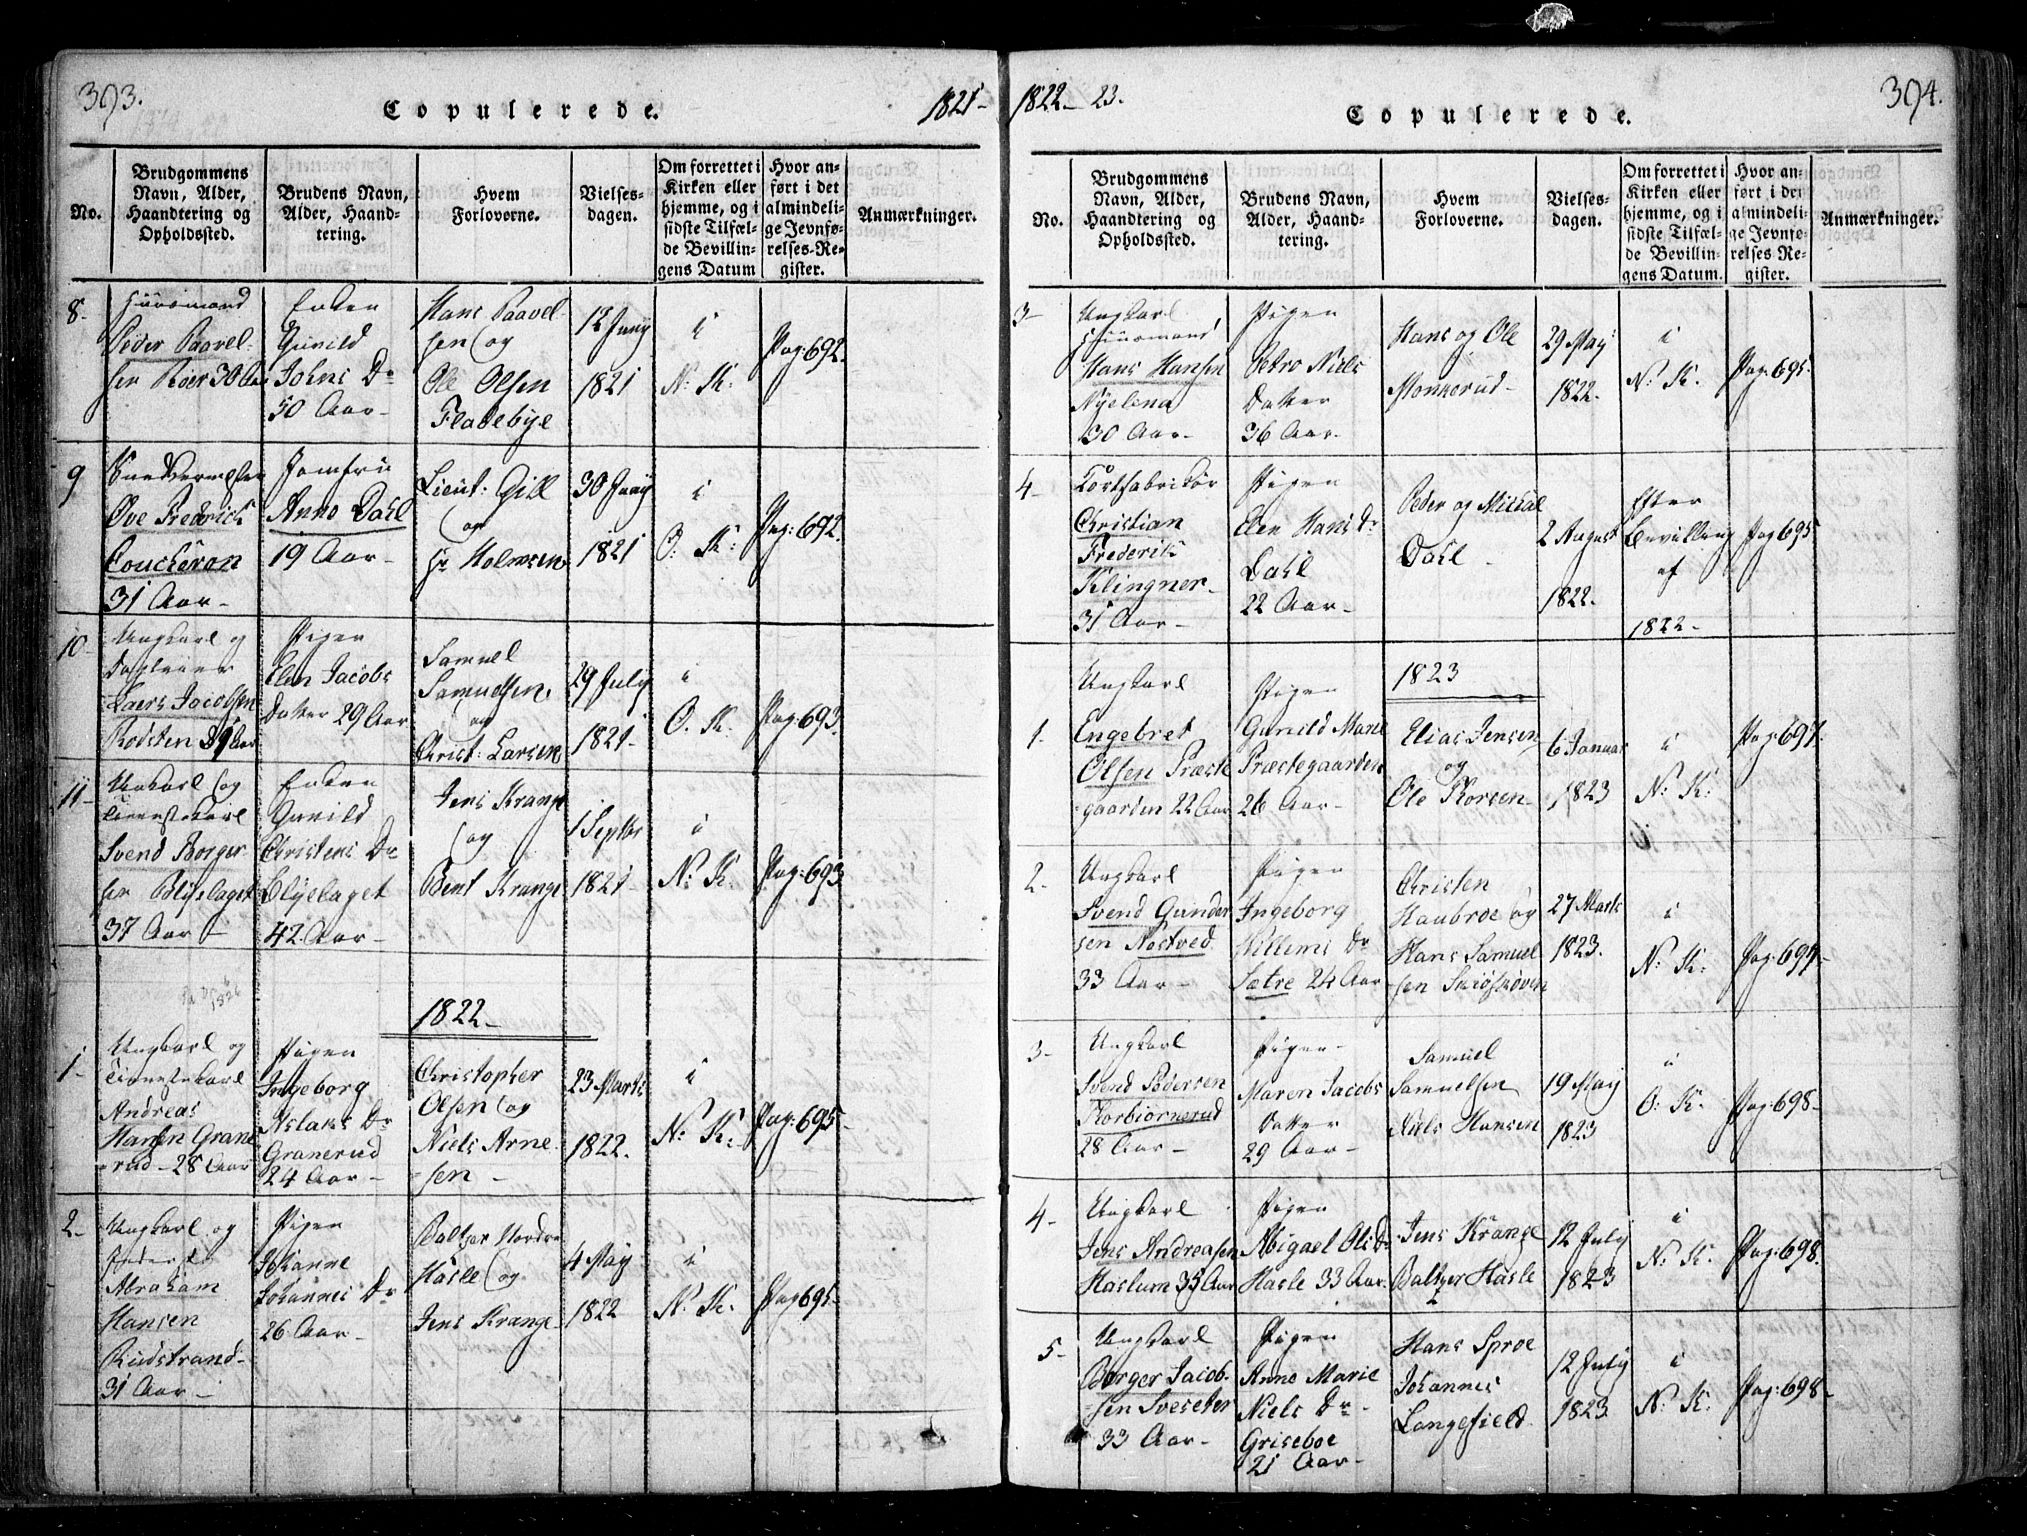 393.
Copulerede.
1821-
No.
Brudgommens
Navn, Alder,
Haandtering og
Opholdssted.
Brudens Navn,
Alder, Haand-
tering.
Hvem
Forloverne.
Vielses-
dagen.
Om forrettet i
Kirken eller
hjemme, og i
sidste Tilfæl-
de Bevillin-
gens Datum
Hvor an-
ført i det
almindeli-
ge Jevnfø-
relses-Re-
gister.
Anmærkninger.
8-
Huusmand
Peder Paavel-
sen Röer 30 Aar
Enken
Gunild
Johns Dr
50 Aar-
Hans Paavel-
sen og
Ole Olsen
Fladebÿe
12 Juny
1821
i
N: K:
Pag: 692.
9
Ove Frederich
Coucheron
31 Aar-
Jomfru
Anne Dahl
19 Aar-
Lieut: Gill
og
Hr Holmsen
30 Juny
1821
i
O: K:
Pag: 692.
10-
Ungkarl og
Dagleier
Laers Jacobsen
Rodsten 39 Aar
Pigen
Elen Jacobs
Datter 29 Aar
Samuel
Samuelsen
og
Christ: Larsen
29 July
1821-
i
O. K.
Pag: 693.
11-
Unkarl og
Tienestekarl
Svend Borger-
sen Blÿelaget
37 Aar-
Enken
Gunild
Christens Dr
Blÿelaget
42 Aar-
Jens Krange
og
Bent Krange
1 Septbr
1821-
i
N. K.
Pag: 693
1822-
1-
Ungkarl og
Tienestekarl
Andreas
Hansen Grane
-rud- 28 Aar
Pigen
Ingeborg
Aslaks Dr
Granerud
24 Aar-
Christopher
Olsen og
Niels Arne-
sen-
23 Marts
1822.
i
N: K:
Pag: 695-
2-
Ungkarl og
Inderst
Abraham
Hansen
Rudstrand-
31 Aar-
Pigen
Johanne
Johannes Dr
26 Aar-
Baltzer Nordre
Hasle og
Jens Krange-
4 May
1822
i
N: K.
Pag 695-
1822- 23.
Copulerede.
394.
No.
Brudgommens
Navn, Alder,
Haandtering og
Opholdssted.
Brudens Navn,
Alder, Haand-
tering.
Hvem
Forloverne.
Vielses-
dagen.
Om forrettet i
Kirken eller
hjemme, og i
sidste Tilfæl-
de Bevillin-
gens Datum.
Hvor an-
ført i det
almindeli-
ge Jevnfø-
relses-Re-
gister.
Anmærkninger.
3-
Ungkarl
Huusmand
Hans Hansen
Nÿelena
30 Aar-
Pigen
Petro Niels
Datter
36 Aar-
Hans og Ole
Monkerud-
29 May
1822.
i
N: K.
Pag: 695.
4-
Christian
Frederik
Klingner-
31 Aar-
Pigen
Elen Hans Dr
Dahl
22 Aar-
Peder og Michal
Dahl
2 August
1822.
Efter
Bevilling
af
1822-
Pag 695
1823
1-
Ungkarl
Engebret
Olsen Præste
-gaarden 22 Aar
Pigen
Gunild Marie
Præstegaarden
26 Aar-
Elias Jensen
og
Ole Thorsen-
6 Januar
1823
i
N: K:
Pag: 697.
2-
Ungkarl
Svend Gunder
sen Nestved
33 Aar-
Pigen
Ingeborg
Willems Dr
Sætre 24 Aar
Christen
Haubroe og
Hans Samuel
-sen
27 Marts
1823.
i
N: K:
Pag: 697-
3-
Ungkarl
Svend Pedersen
Thorbiornerud
28 Aar-
Pigen-
Maren Jacobs
Datter
29 Aar-
Samuel
Samuelsen
Niels Hansen
19 May
1823
i
O: K.
Pag: 698-
4-
Ungkarl
Jens Andreasen
Haslum 35 Aar
Pigen
Abigael Ols Dr
Hasle 33 Aar
Jens Krange
Baltzer Hasle
12 July
1823
i
N: K.
Pag: 698.
5-
Ungkarl
Borger Jacob-
-sen Sveseter
33 Aar-
Pigen
Anne Marie
Niels Dr-
Griseboe
21 Aar-
Hans Sproe
Johannes
Langefield
12 July
1823
i
N: K.
Pag: 698-